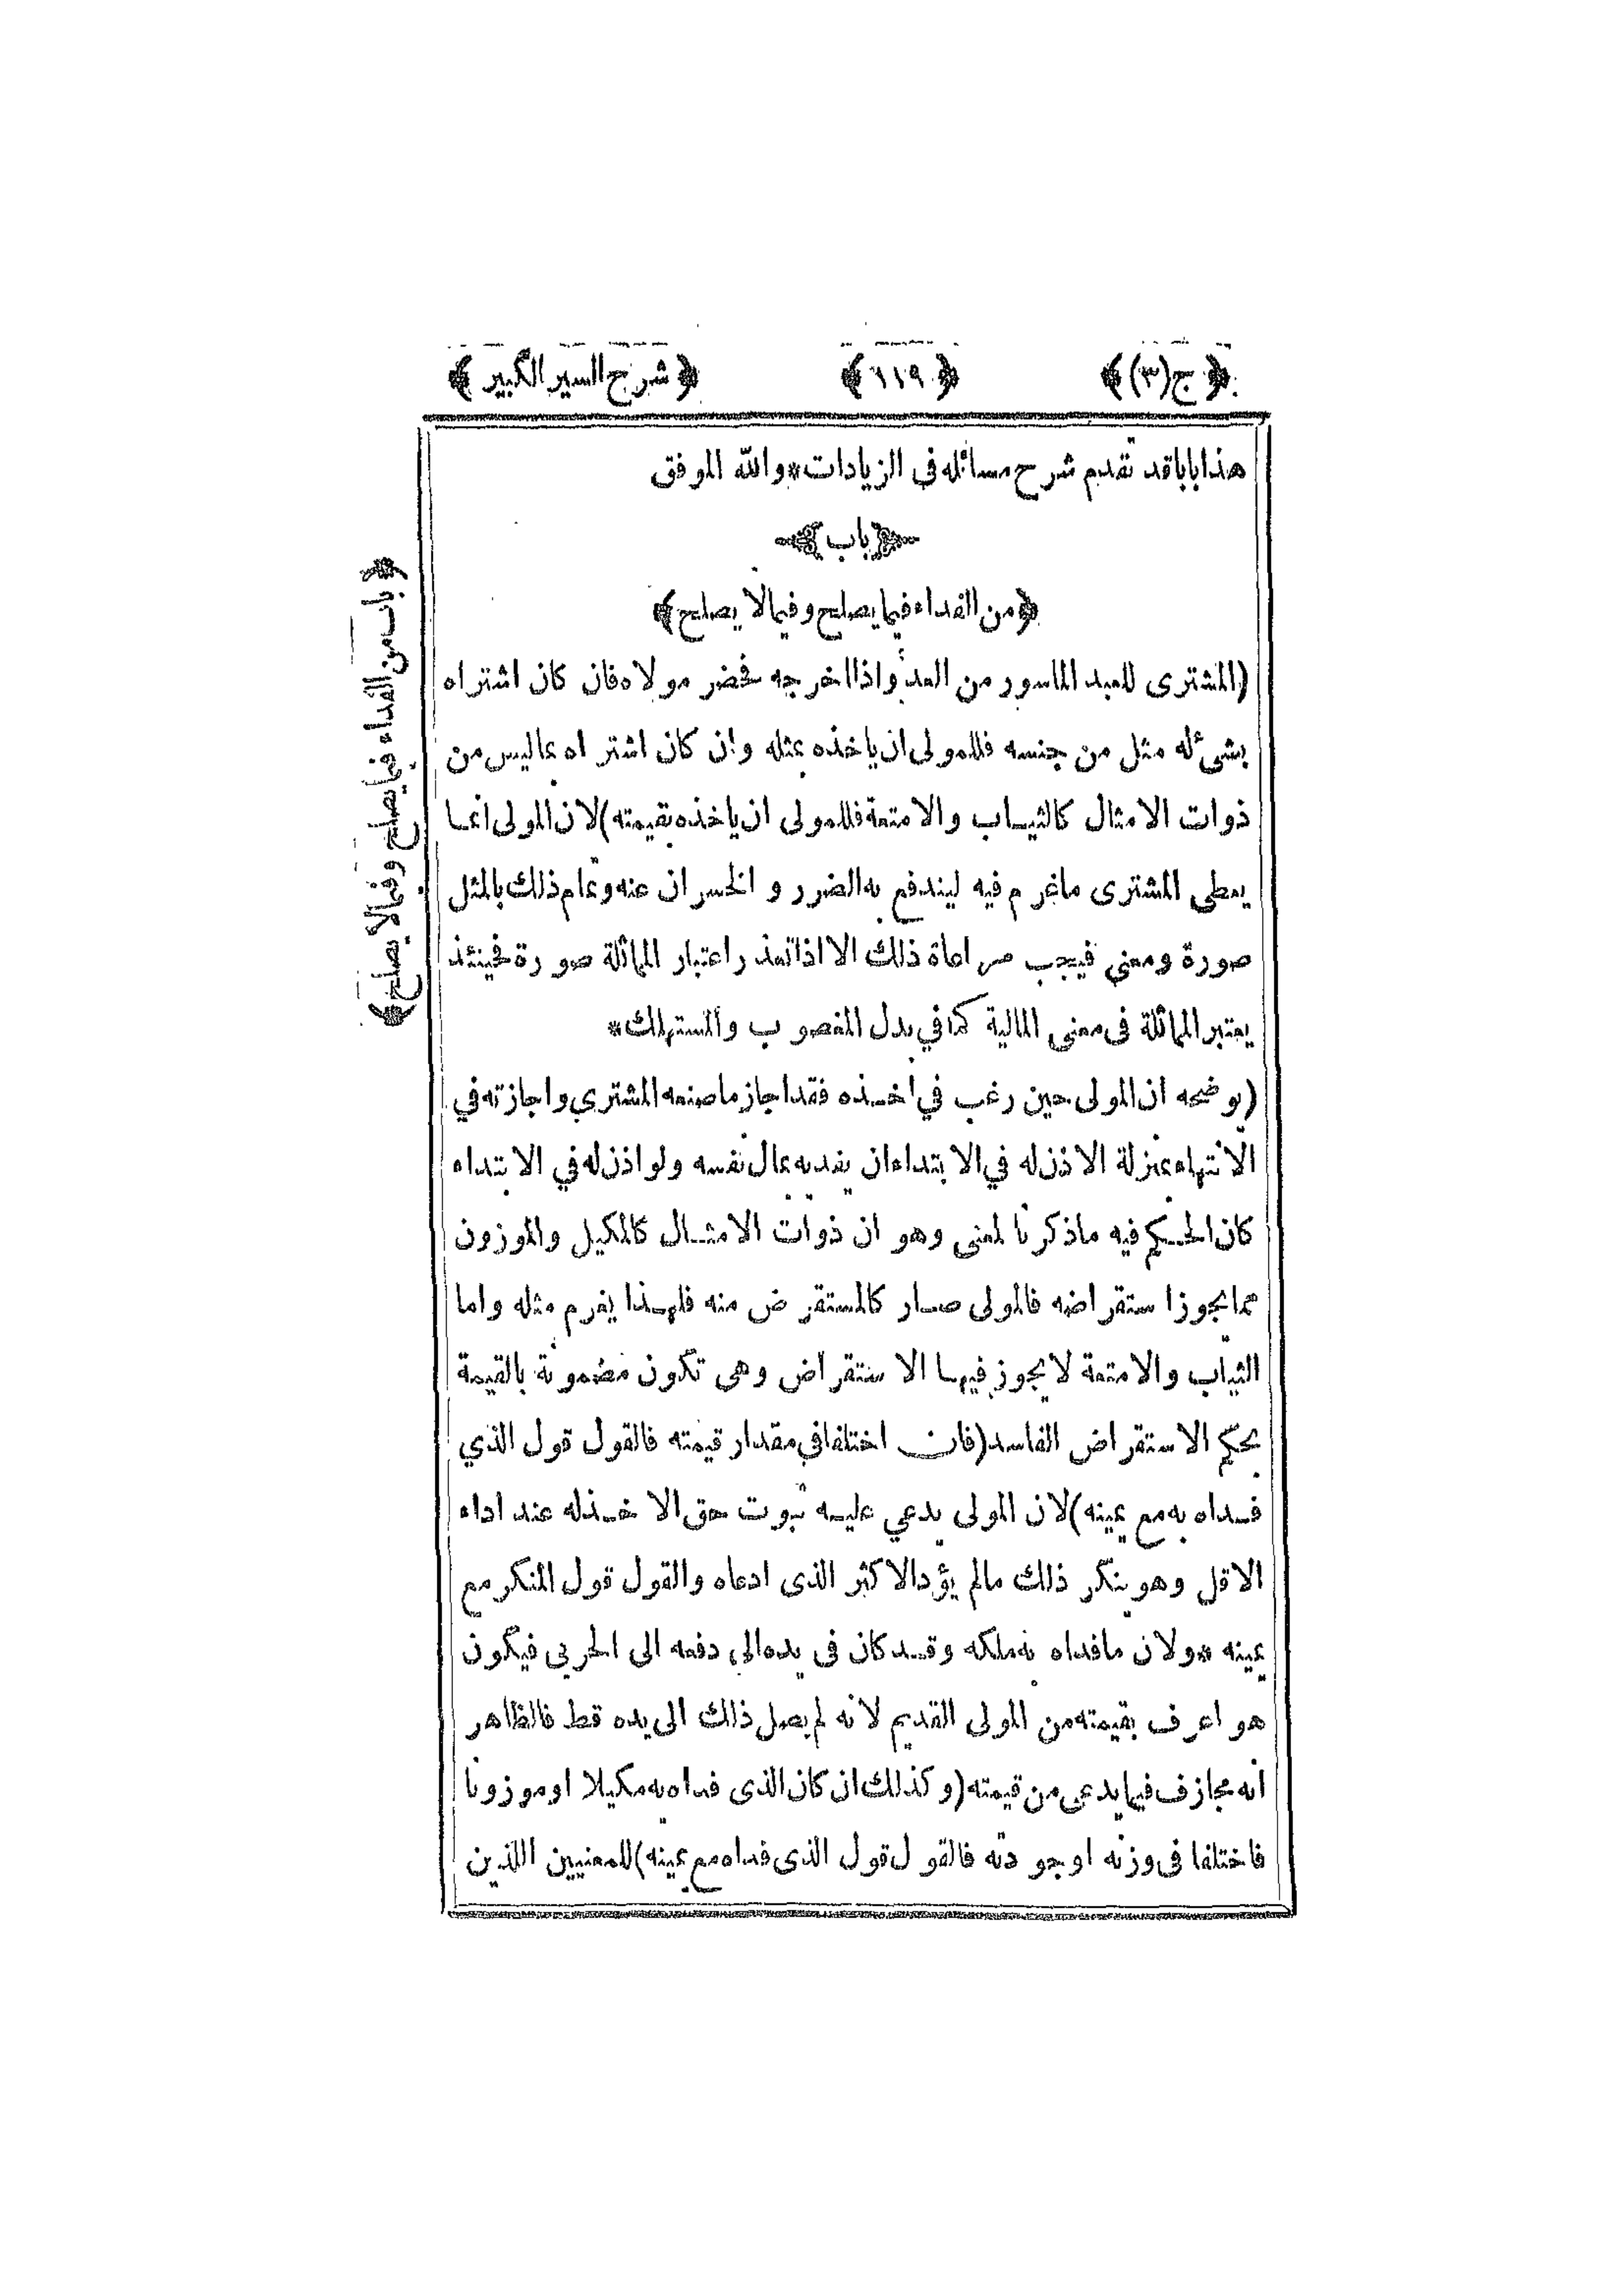 ﴿ ج (٣) ﴾ ﴿ ١١٩ ﴾ ﴿ شرح السير الكبير ﴾
هذا بابا قد تقدم شرح مسائله فى الزيادات * والله الموفق
﴿ باب ﴾
﴿ من الفداء فيما يصلح وفيما لا يصلح ﴾
(المشترى للعبد الماسور من العدو اذا اخرجه فحضر مولاه فان كان اشتراه
بشئ له مثل من جنسه فللمولى ان ياخذه بمثله وان كان اشتراه بما ليس من
ذوات الامثال كالثياب والامتعة فللمولى ان ياخذه بقيمته) لان المولى انما
يعطى المشترى ما غرم فيه ليندفع به الضرر والخسران عنه وتمام ذلك بالمثل
صورة ومعنى فيجب مراعاة ذلك الا اذا تعذر اعتبار المماثلة صورة فحينئذ
يعتبر المماثلة فى معنى المالية كما في بدل المغصوب والمستهلك *
(يوضحه ان المولى حين رغب في اخذه فقد اجاز ما صنعه المشتري واجازته في
الانتهاء بمنزلة الاذن له في الابتداء ان يفديه بمال نفسه ولو اذن له في الابتداء
كان الحكم فيه ما ذكرنا لمعنى وهو ان ذوات الامثال كالمكيل والموزون
مما يجوز استقراضه فالمولى صار كالمستقرض منه فلهذا يغرم مثله واما
الثياب والامتعة لا يجوز فيها الاستقراض وهى تكون مضمونة بالقيمة
بحكم الاستقراض الفاسد (فان اختلفا في مقدار قيمته فالقول قول الذي
فداه به مع يمينه) لان المولى يدعي عليه ثبوت حق الاخذ له عند اداء
الاقل وهو ينكر ذلك مالم يؤد الاكثر الذى ادعاه والقول قول المنكر مع
يمينه * ولان ما فداه به ملكه وقد كان فى يده الى دفعه الى الحربى فيكون
هو اعرف بقيمته من المولى القديم لانه لم يصل ذلك الى يده قط فالظاهر
انه مجازف فيما يدعى من قيمته (وكذلك ان كان الذى فداه به مكيلا او موزونا
فاختلفا فى وزنه او جودته فالقول قول الذى فداه مع يمينه) للمعنيين اللذين
﴿ باب من الفداء فيما يصلح وفيما لا يصلح ﴾